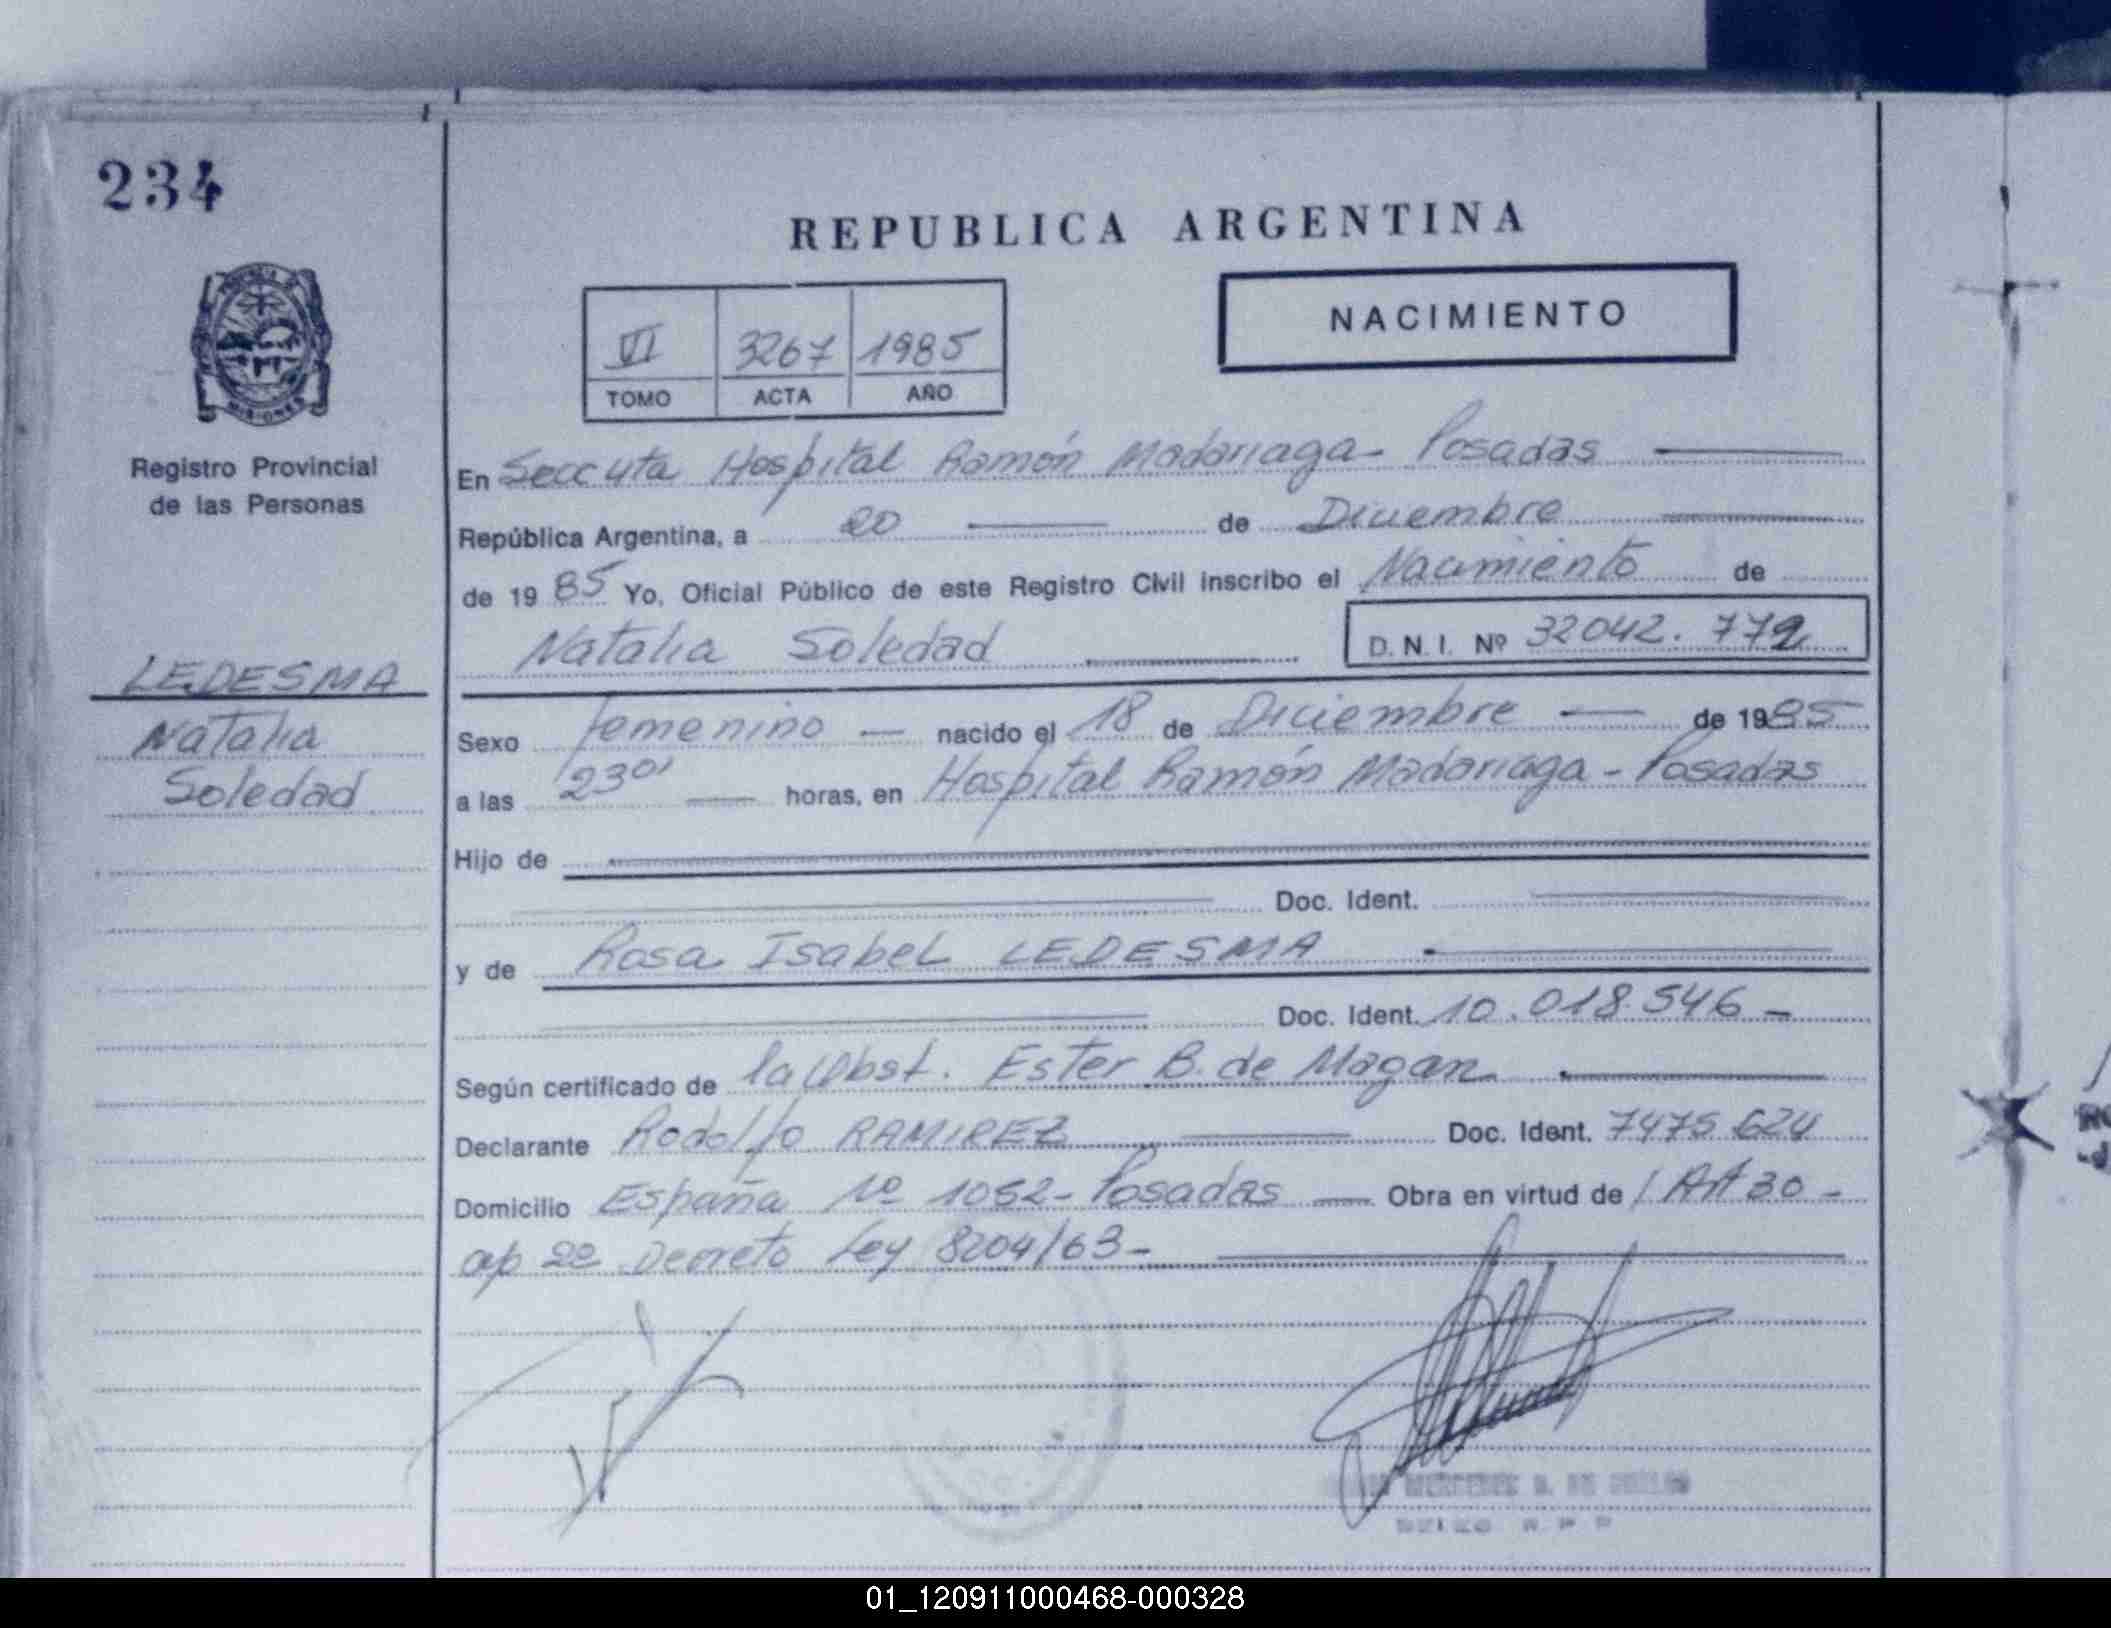 234
REPUBLICA ARGENTINA
NACIMIENTO
VI 3267 1985
TOMO ACTA AÑO
PROVINCIA DE
MISIONES
Registro Provincial
de las Personas
En Secc uta Hospital Ramón Madariaga - Posadas
República Argentina, a 20 de Diciembre
de 1985 Yo, Oficial Público de este Registro Civil inscribo el Nacimiento de
Natalia Soledad D.N.I. Nº 32042.772
LEDESMA
Natalia
Soledad
Sexo femenino nacido el 18 de Diciembre de 1985
a las 23 01 horas, en Hospital Ramón Madariaga - Posadas
Hijo de
Doc. Ident.
y de Rosa Isabel LEDESMA
Doc. Ident. 10.018.546 -
Según certificado de la Obst. Ester B. de Magan
Declarante Rodolfo RAMIREZ Doc. Ident. 7475.624
Domicilio España Nº 1052 - Posadas Obra en virtud de / Art 30 -
ap 2º Decreto Ley 8204/63 -
MERCEDES
01_120911000468-000328